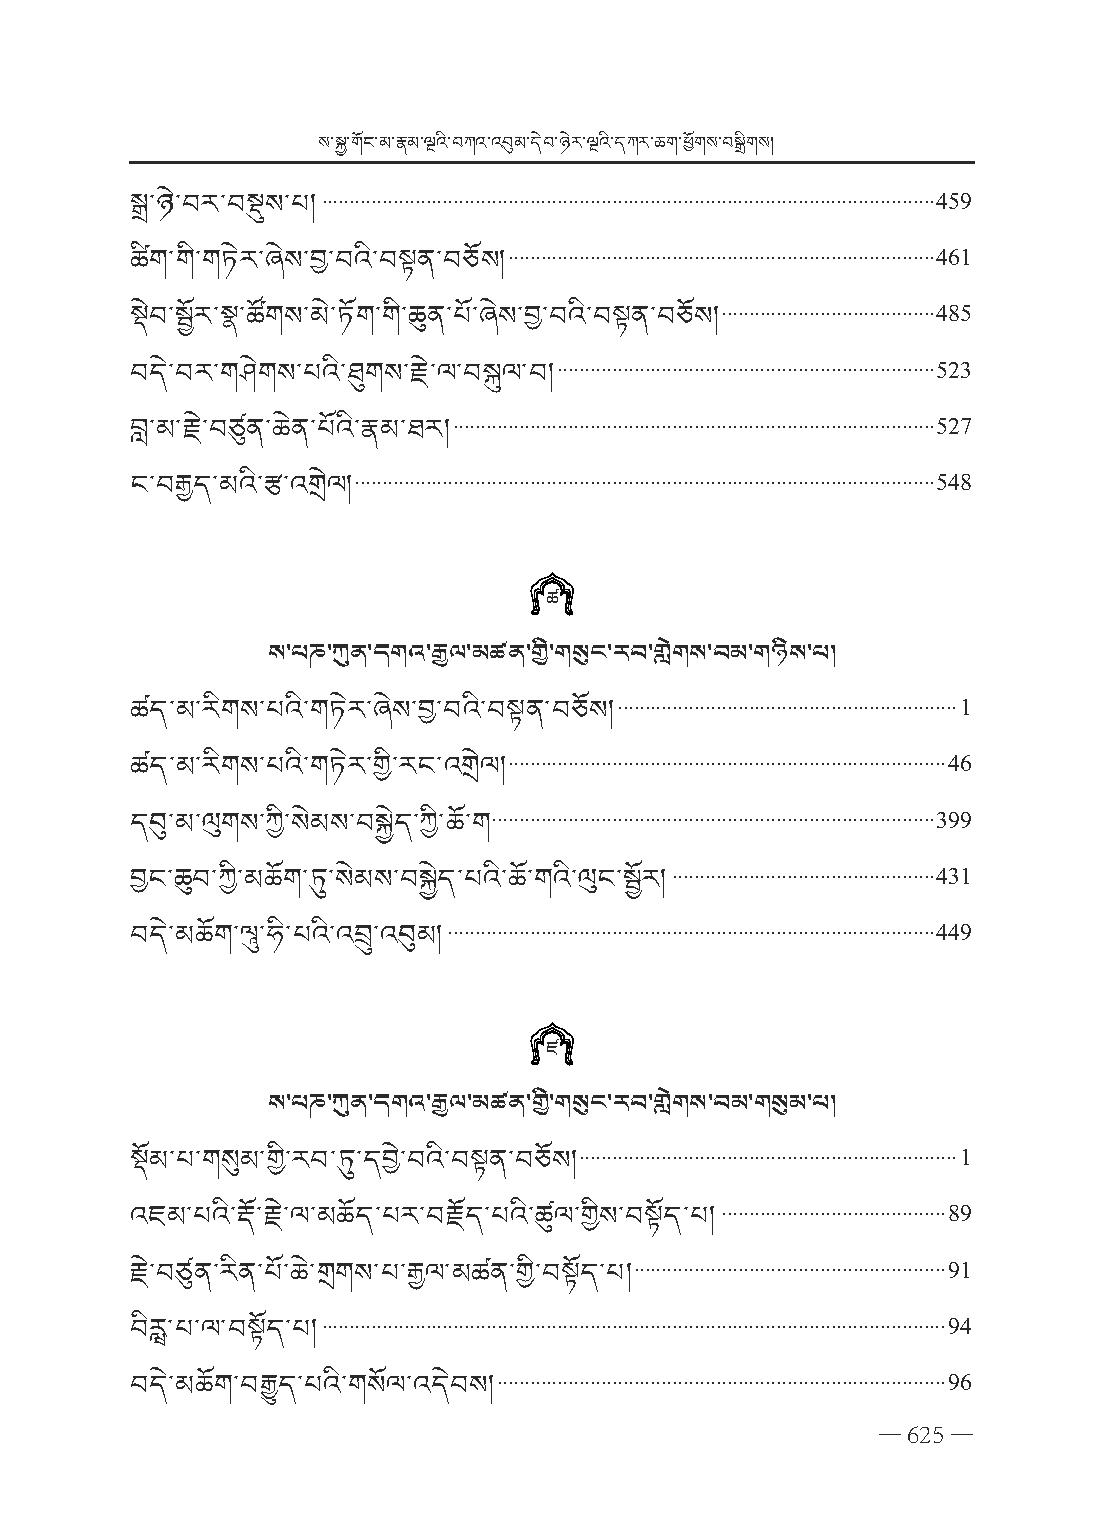 ས་སྐྱ་གོང་མ་རྣམ་ལྔའི་བཀའ་འབུམ་དེབ་ཉེར་ལྔའི་དཀར་ཆག་ཕྱོགས་བསྒྲིགས།
སྒྲ་ཉེ་བར་བསྡུས་པ། 459
ཚིག་གི་གཏེར་ཞེས་བྱ་བའི་བསྟན་བཅོས། 461
སྡེབ་སྦྱོར་སྣ་ཚོགས་མེ་ཏོག་གི་ཆུན་པོ་ཞེས་བྱ་བའི་བསྟན་བཅོས། 485
བདེ་བར་གཤེགས་པའི་ཐུགས་རྗེ་ལ་བསྐུལ་བ། 523
བླ་མ་རྗེ་བཙུན་ཆེན་པོའི་རྣམ་ཐར། 527
ང་བརྒྱད་མའི་རྩ་འགྲེལ། 548
ཚ
ས་པཎ་ཀུན་དགའ་རྒྱལ་མཚན་གྱི་གསུང་རབ་གླེགས་བམ་གཉིས་པ།
ཚད་མ་རིགས་པའི་གཏེར་ཞེས་བྱ་བའི་བསྟན་བཅོས། 1
ཚད་མ་རིགས་པའི་གཏེར་གྱི་རང་འགྲེལ། 46
དབུ་མ་ལུགས་ཀྱི་སེམས་བསྐྱེད་ཀྱི་ཆོ་ག 399
བྱང་ཆུབ་ཀྱི་མཆོག་ཏུ་སེམས་བསྐྱེད་པའི་ཆོ་གའི་ལུང་སྦྱོར། 431
བདེ་མཆོག་ལཱུ་ཧི་པའི་འབྲུ་འབུམ། 449
ཛ
ས་པཎ་ཀུན་དགའ་རྒྱལ་མཚན་གྱི་གསུང་རབ་གླེགས་བམ་གསུམ་པ།
སྡོམ་པ་གསུམ་གྱི་རབ་ཏུ་དབྱེ་བའི་བསྟན་བཅོས། 1
འཇམ་པའི་རྡོ་རྗེ་ལ་མཆོད་པར་བརྗོད་པའི་ཚུལ་གྱིས་བསྟོད་པ། 89
རྗེ་བཙུན་རིན་པོ་ཆེ་གྲགས་པ་རྒྱལ་མཚན་གྱི་བསྟོད་པ། 91
བིརྺ་པ་ལ་བསྟོད་པ། 94
བདེ་མཆོག་བརྒྱུད་པའི་གསོལ་འདེབས། 96
— 625 —